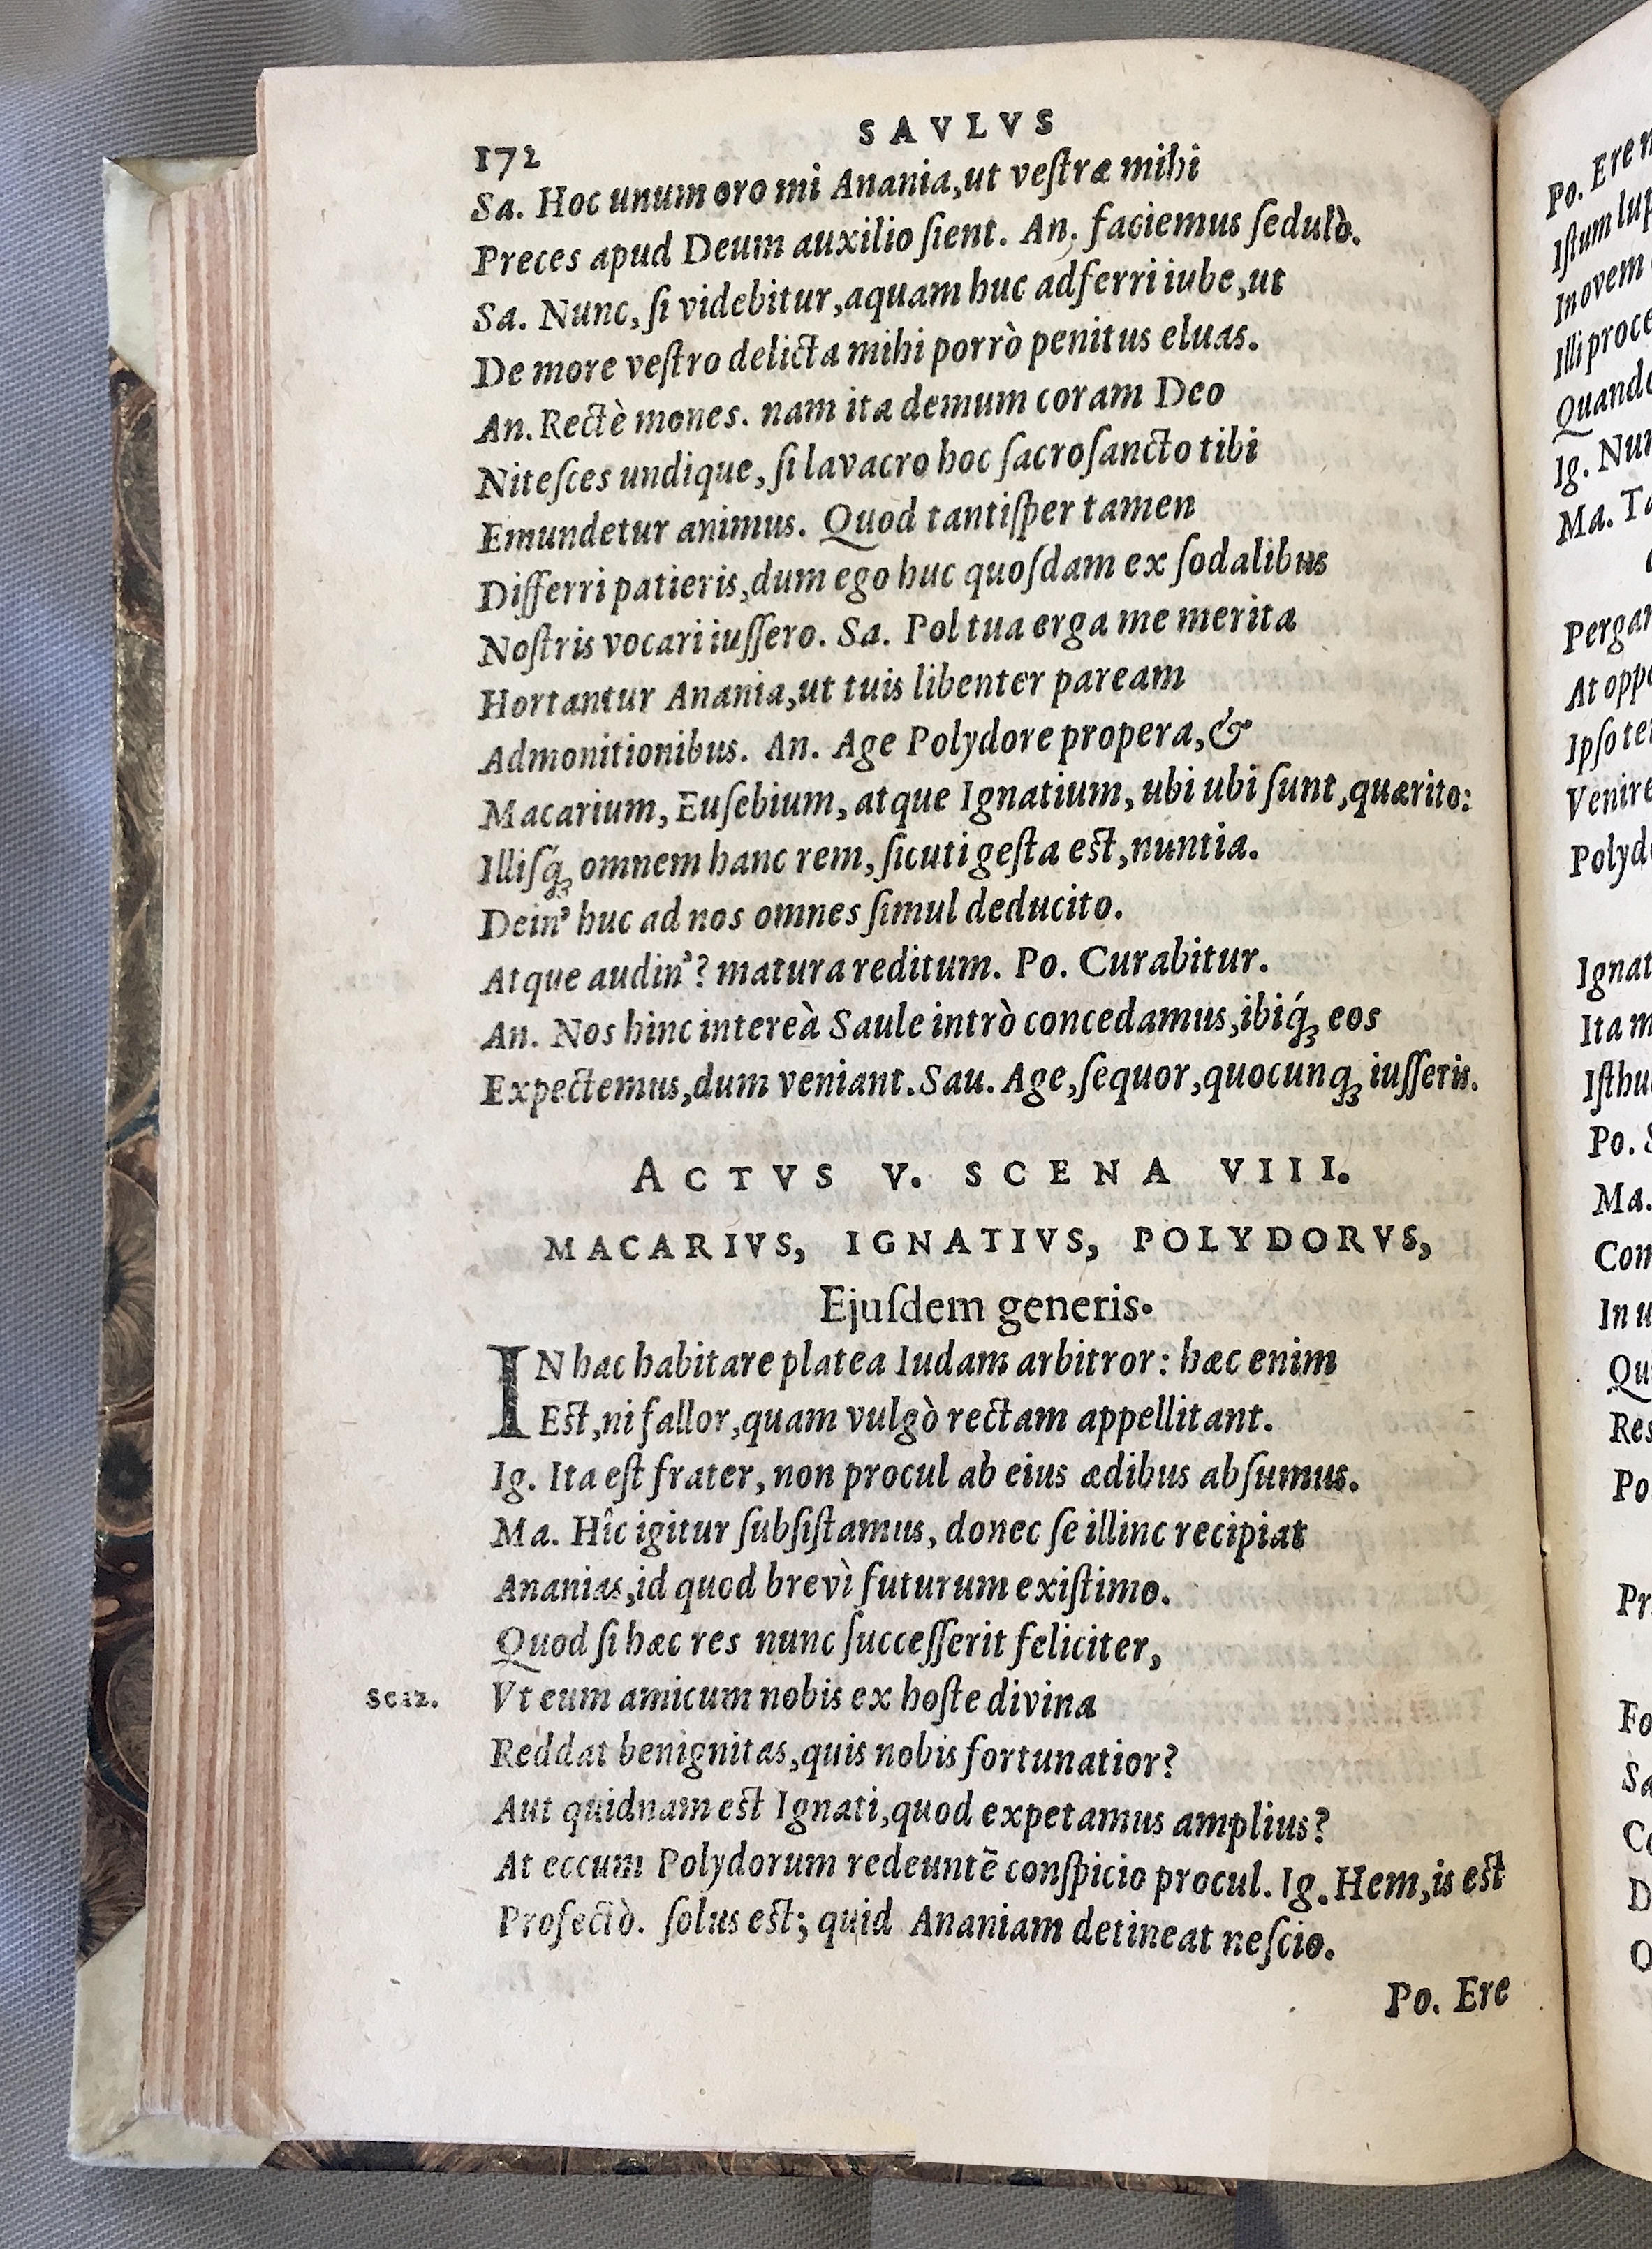 SAVLVS
172
Sa. Hoc unum oro mi Anania,ut veſtræ mihi
Preces apud Deum auxilio ſient. An. faciemus ſedulò.
Sa. Nunc, ſi videbitur,aquam huc adferri iube,ut
De more veſtro delicta mihi porrò penitus eluas.
An. Rectè mones. nam ita demum coram Deo
Niteſces undique, ſi lavacro hoc ſacroſancto tibi
Emundetur animus. Quod tantiſper tamen
Differri patieris,dum ego huc quoſdam ex ſodalibus
Noſtris vocari iuſſero. Sa. Pol tua erga me merita
Hortantur Anania,ut tuis libenter paream
Admonitionibus. An. Age Polydore propera,&
Macarium, Euſebium, atque Ignatium, ubi ubi ſunt,quærito:
Illiſq́ꝫ omnem hanc rem, ſicuti geſta eſt,nuntia.
Dein' huc ad nos omnes ſimul deducito.
Atque audin'? matura reditum. Po. Curabitur.
An. Nos hinc intereà Saule intrò concedamus,ibiq́ꝫ eos
Expectemus,dum veniant. Sau. Age,ſequor,quocunqꝫ iuſſeris.
ACTVS V. SCENA VIII.
MACARIVS, IGNATIVS, POLYDORVS,
Ejuſdem generis.
IN hac habitare platea Iudam arbitror: hæc enim
Eſt,ni fallor,quam vulgò rectam appellitant.
Ig. Ita eſt frater, non procul ab eius ædibus abſumus.
Ma. Hîc igitur ſubſiſtamus, donec ſe illinc recipiat
Ananias,id quod brevì futurum exiſtimo.
Quod ſi hæc res nunc ſucceſſerit feliciter,
Sciz. Vt eum amicum nobis ex hoſte divina
Reddat benignitas,quis nobis fortunatior?
Aut quidnam eſt Ignati,quod expetamus amplius?
At eccum Polydorum redeuntē conſpicio procul. Ig. Hem,is eſt
Profectò. ſolus eſt; quid Ananiam detineat neſcio.
Po. Ere
Po. Ere
Iſtum
In ovem
Illi
Ig.
Ma.
Po.
Ma.
In
Po